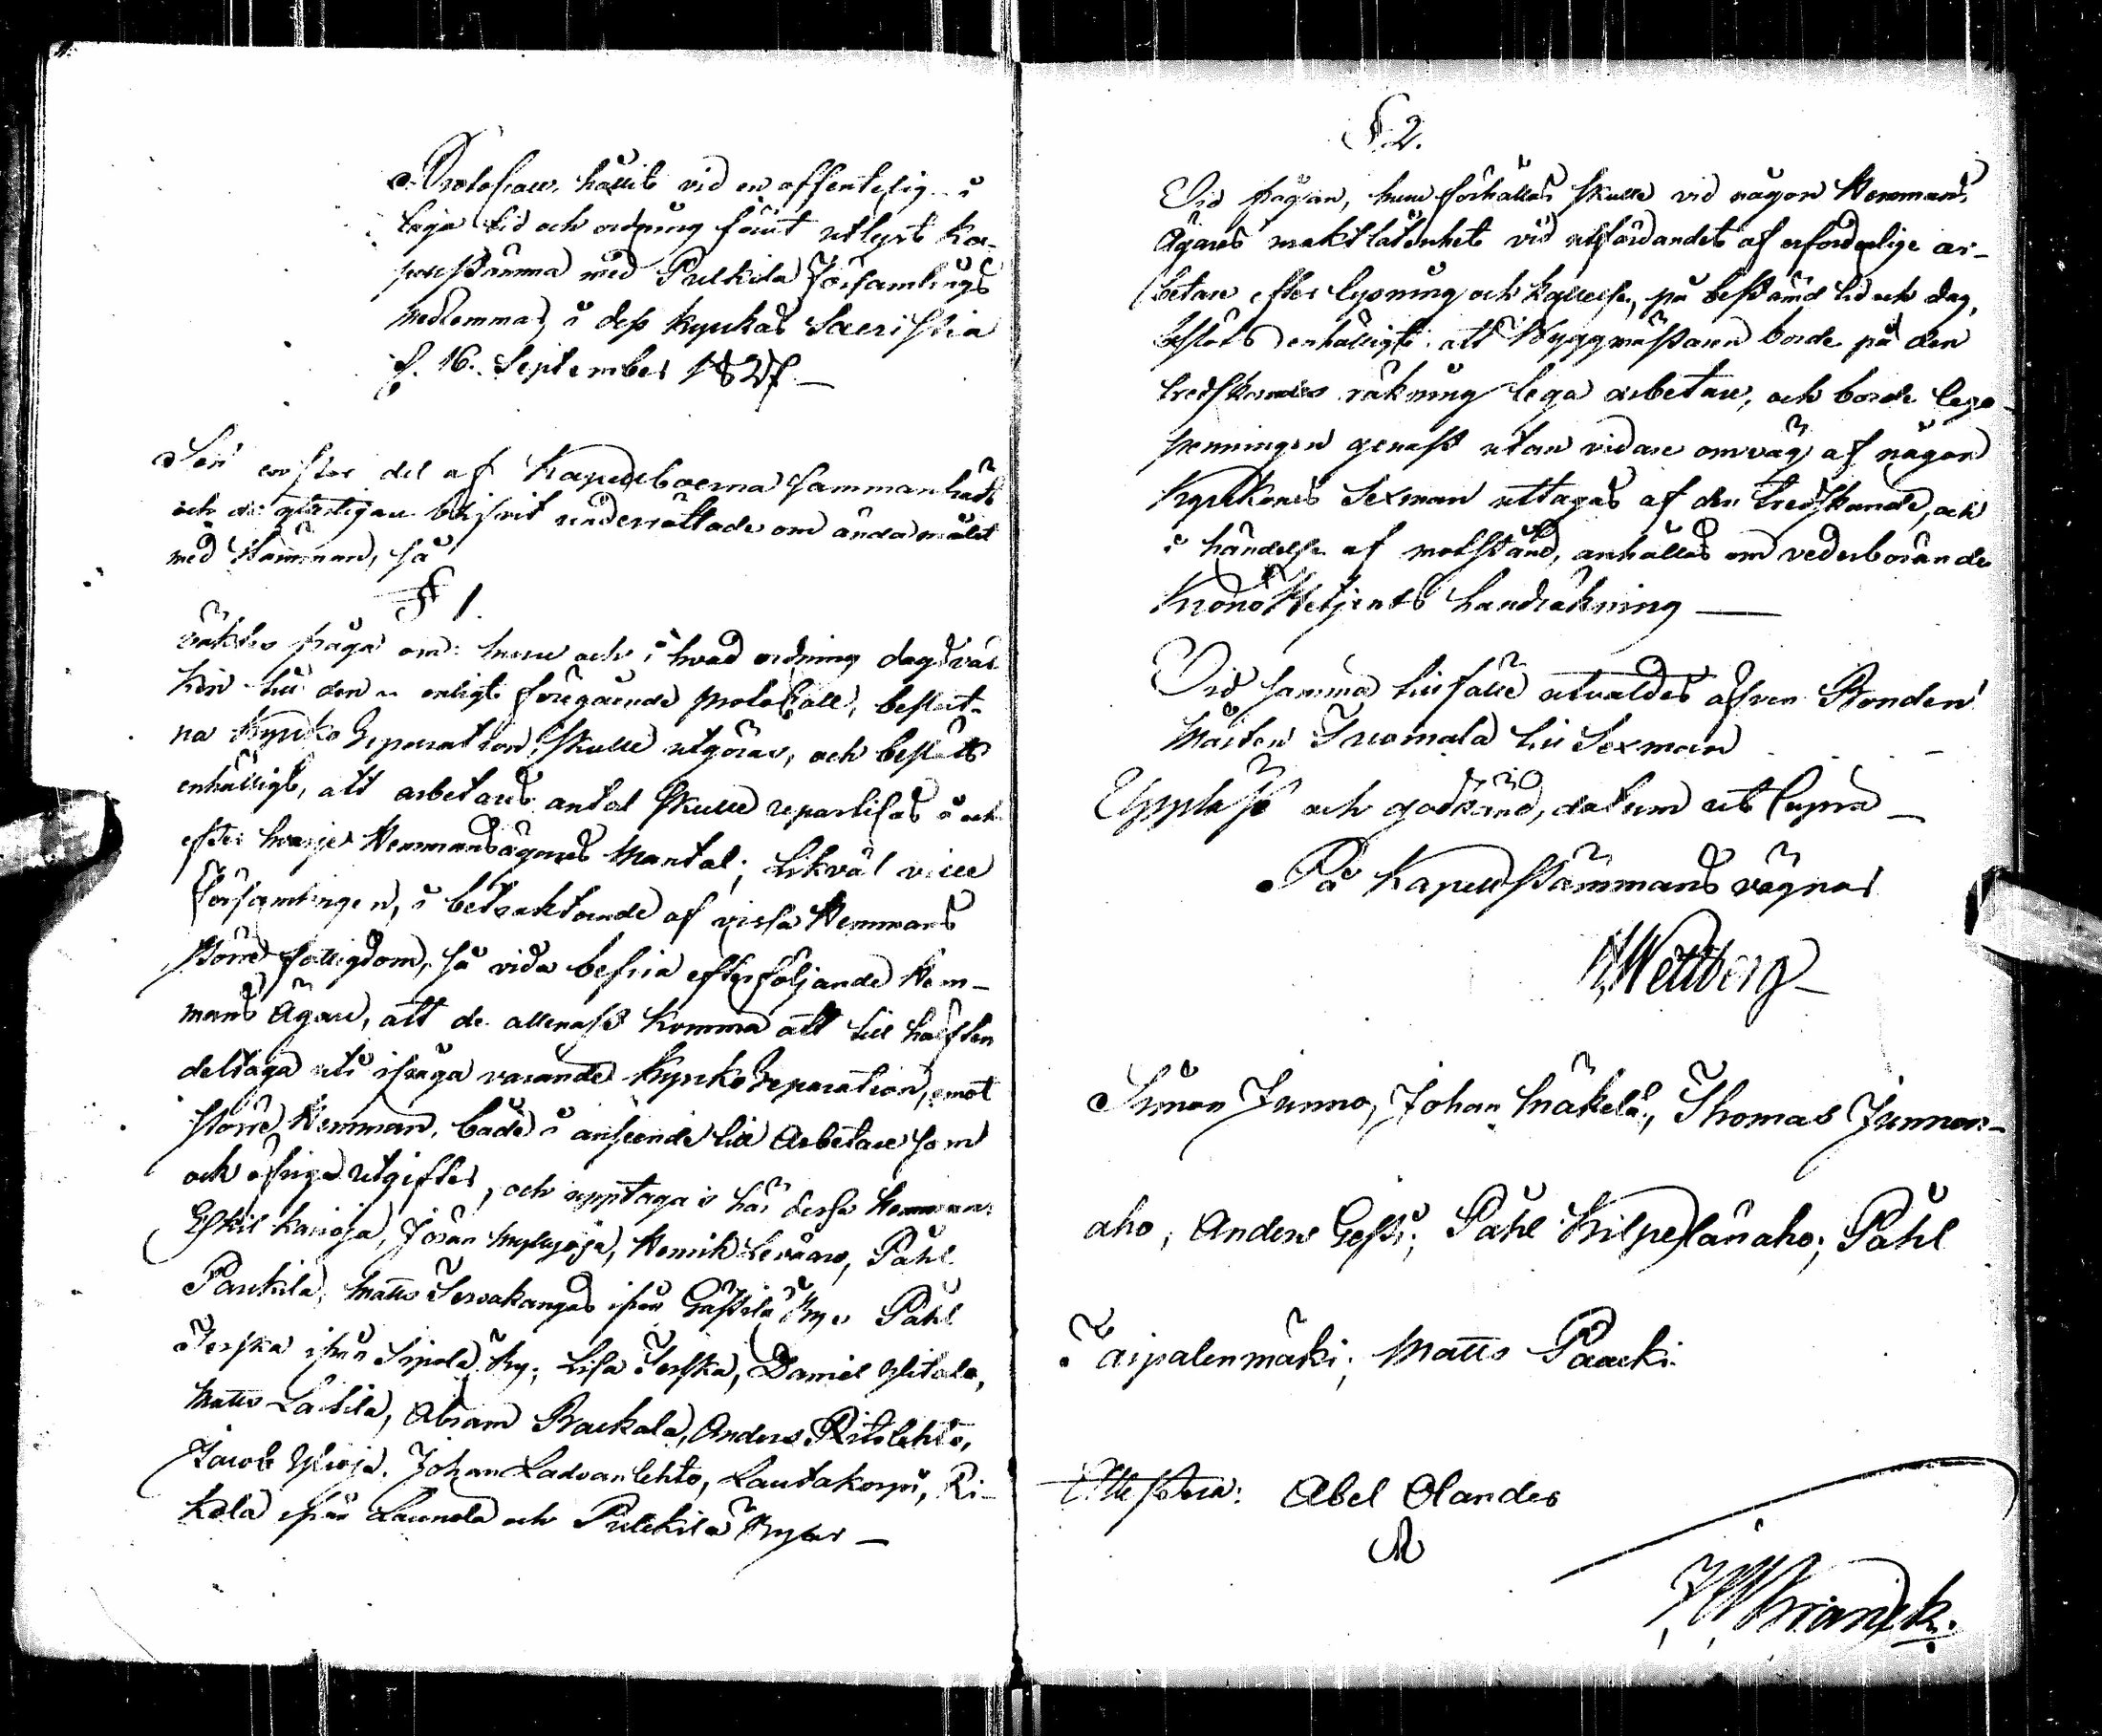 Protocoll, hållit vid en offentelig i
laga tid och ordning förut utlyst Ka-
pellstämma med Pulkila Församlings
medlemmar, i dess kyrkas Sacristia
d. 16. September 1827.
Sen större del af Kapellboerna sammanträdt
och de blifvit underrättade om ändamålet
med Stämman, så
§ 1.
väktes fråga om: huru och i hvad ordning dagsvär
ken till den enligt föregående protokoll, beslut-
na Kyrko Reparation, skulle utgöras, och beslöts
enhälligt, att arbetares antal skulle repartiseras å och
efter hvarje Hemmansägares Mantal; Likväl ville
Församlingen, i betraktande af vissa Hemmans
större fattigdom, så vida befria efterföljande Hem-
mans Ägare, att de allenast komma att till hälften
deltaga uti ifråga varande Kyrko Reparation, emot
större Hemman, både i anseende till Arbetare som
och öfriga utgifter, och upptagas här dessa Hemman:
Eskil Karioja, Jöran Myllyoja, Henrik Levaaro, Påhl
Parkila, Matts Tervakangas ifrån By, Påhl
Terska ifrån Sipola By, Lisa Terska, Daniel Ylitalo,
Matts Laitila, Abram Raekala, Anders Ritolehto,
Jacob Ylioja, Johan Ladvanlehto, Lautakorpi, Ri-
kola ifrån Laurola och Pulkila Byar —
§ 2.
Vid frågan, huru förhållas skulle vid någon Hemmans
Ägares maktlåtenhet vid utfärdandet af erforderlige ar-
betare efter lysning och kallelse, på bestämd tid och dag,
beslöts enhälligt: att Byggmästaren borde på den
tredskandes räkning lega arbetare, och borde lego-
penningen genast utan vidare omväg af någon
Kyrkones Sexman uttagas af den tredskande, och
i händelse af motstånd, anhållas om vederbörande
Krono Betjents handräkning —
Vid samma tillfälle utvaldes äfven Bonden
Mårten Tuomala till Sexman
Uppläst och godkänd, datum ut supra —
På Kapellstämmans vägnar
Wettberg
Simon Junno, Johan Mäkelä, Thomas Junnon-
aho, Anders Påhl Kilpelänaho; Påhl
Taipalenmäki; Matts Paacki
Attestera: Abel Olander